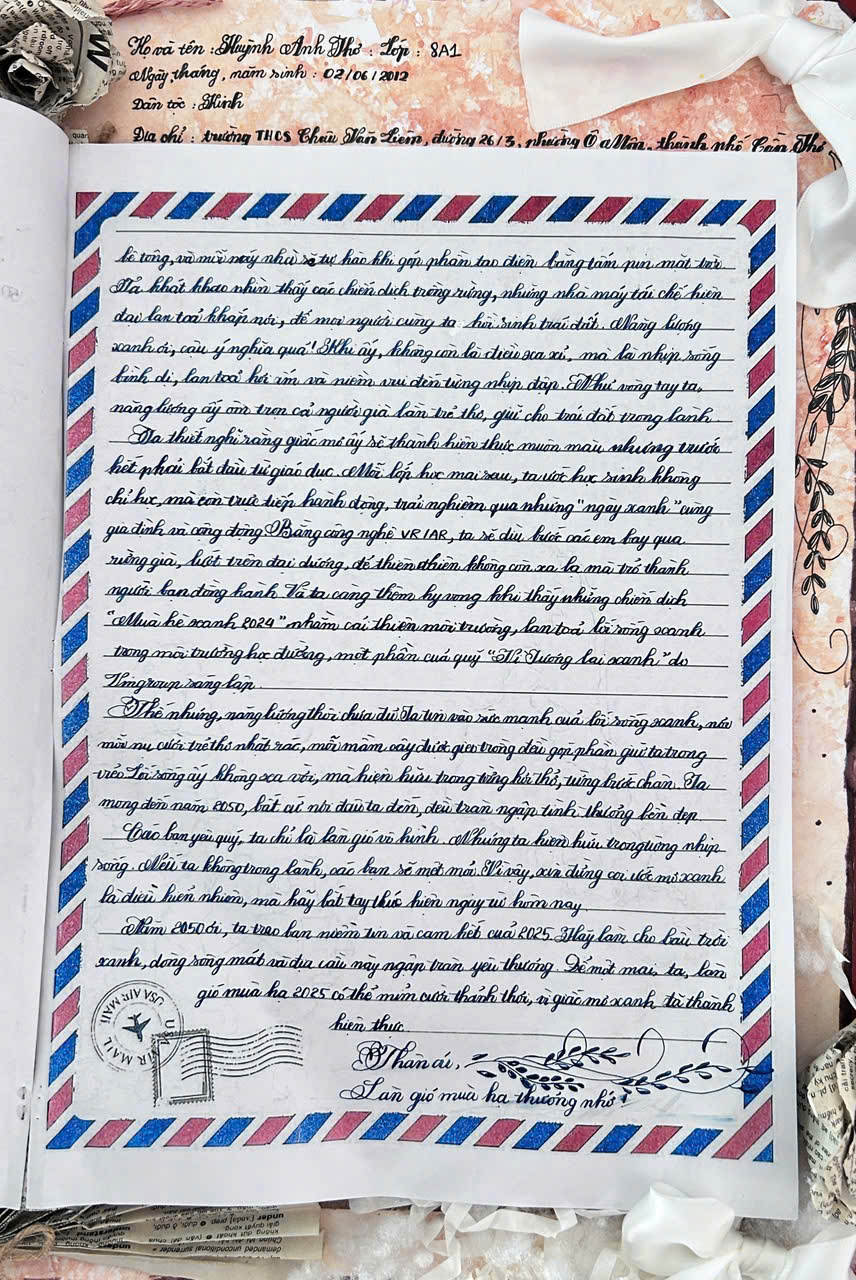 Họ và tên : Huỳnh Anh Thơ : Lớp : 8A1
Ngày, tháng, năm sinh : 02/06/2012
Dân tộc : Kinh
Địa chỉ : trường THCS Châu Văn Liêm, đường 26/3, phường Ô Môn, thành phố Cần Thơ
bê tông, và mỗi máy nhà sẽ tự hào khi góp phần tạo điện bằng tấm pin mặt trời.
Ta khát khao nhìn thấy các chiến dịch trồng rừng, những nhà máy tái chế hiện
đại lan toả khắp nơi, để mọi người cùng ta hồi sinh trái đất. Năng lượng
xanh ơi, cậu ý nghĩa quá! Khi ấy, không còn là điều xa xỉ, mà là nhịp sống
bình dị, lan toả hơi ấm và niềm vui đến từng nhịp đập. Như vòng tay ta,
năng lượng ấy ôm trọn cả người già lẫn trẻ thơ, giữ cho trái đất trong lành.
Ta thiết nghĩ rằng giấc mơ ấy sẽ thành hiện thực muôn màu nhưng trước
hết phải bắt đầu từ giáo dục. Mỗi lớp học mai sau, ta ước học sinh không
chỉ học, mà còn trực tiếp hành động, trải nghiệm qua những "ngày xanh" cùng
gia đình và cộng đồng. Bằng công nghệ VR/AR, ta sẽ dìu bước các em bay qua
rừng già, lướt trên đại dương, để thiên nhiên không còn xa lạ mà trở thành
người bạn đồng hành. Và ta càng thêm hy vọng khi thấy những chiến dịch
"Mùa hè xanh 2024" nhằm cải thiện môi trường, lan toả lối sống xanh
trong môi trường học đường, một phần của quỹ "Vì Tương lai xanh" do
Vingroup sáng lập.
Thế nhưng, năng lượng thôi chưa đủ. Ta tin vào sức mạnh của lối sống xanh, nơi
mỗi nụ cười trẻ thơ nhặt rác, mỗi mầm cây được gieo trồng đều góp phần giữ ta trong
trẻo. Lối sống ấy không xa vời, mà hiện hữu trong từng hơi thở, từng bước chân. Ta
mong đến năm 2050, bất cứ nơi đâu ta đến, đều tràn ngập tình thương bền đẹp.
Các bạn yêu quý, ta chỉ là làn gió vô hình. Nhưng ta hiện hữu trong từng nhịp
sống. Nếu ta không trong lành, các bạn sẽ mệt mỏi. Vì vậy, xin đừng coi ước mơ xanh
là điều hiển nhiên, mà hãy bắt tay thực hiện ngay từ hôm nay.
Năm 2050 ơi, ta trao bạn niềm tin và cam kết của 2025. Hãy làm cho bầu trời
xanh, dòng sông mát và địa cầu này ngập tràn yêu thương. Để một mai, ta, làn
gió mùa hạ 2025 có thể mỉm cười thảnh thơi, vì giấc mơ xanh đã thành
hiện thực.
Thân ái,
Làn gió mùa hạ thương nhớ !
USA AIR MAIL
AIR MAIL